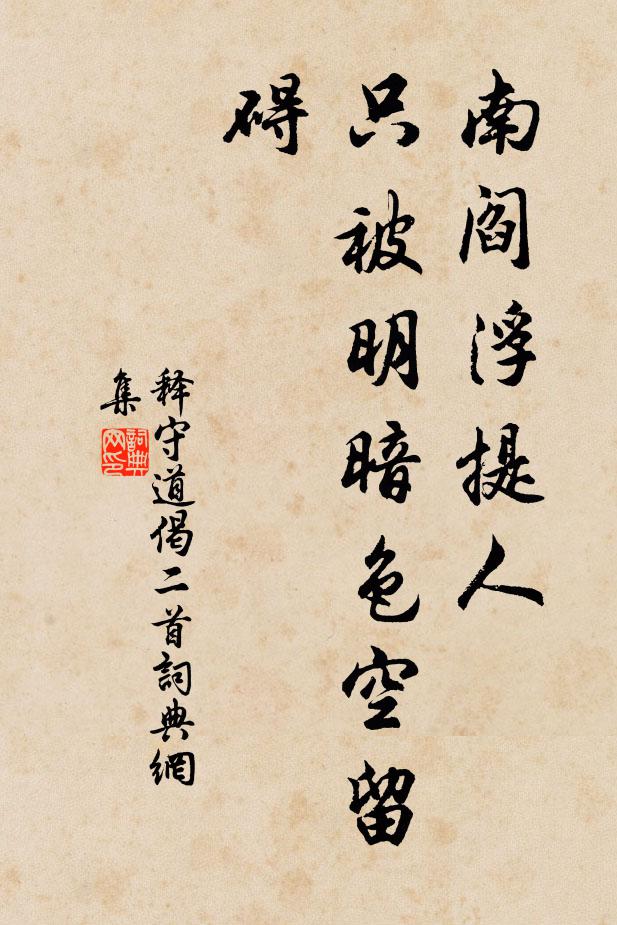 南阎浮提人
只被明暗色空留
碍
释守道偈二首詞典網
集
詞典
网印